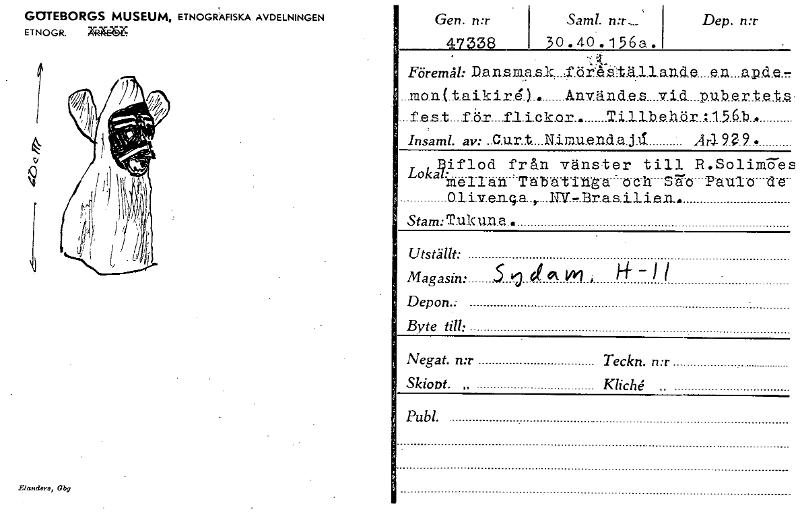 GÖTEBORGS MUSEUM, ETNOGRAFISKA AVDELNINGEN
ETNOGR. ARKEOL.
60 cm
Elanders, Gbg
Gen. n:r Saml. n:r Dep. n:r
47338 30.40.156a.
Föremål: Dansmask föreställande en apde-
mon(taikiré). Användes vid pubertets
fest för flickor. Tillbehör:156b.
Insaml. av: Curt Nimuendajú År 1929.
Lokal: Biflod från vänster till R.Solimões
mellan Tabatinga och São Paulo de
Olivença, NV-Brasilien.
Stam: Tukuna.
Utställt:
Magasin: Sydam. H-11
Depon.:
Byte till:
Negat. n:r Teckn. n:r
Skiopt. „ Kliché „
Publ.